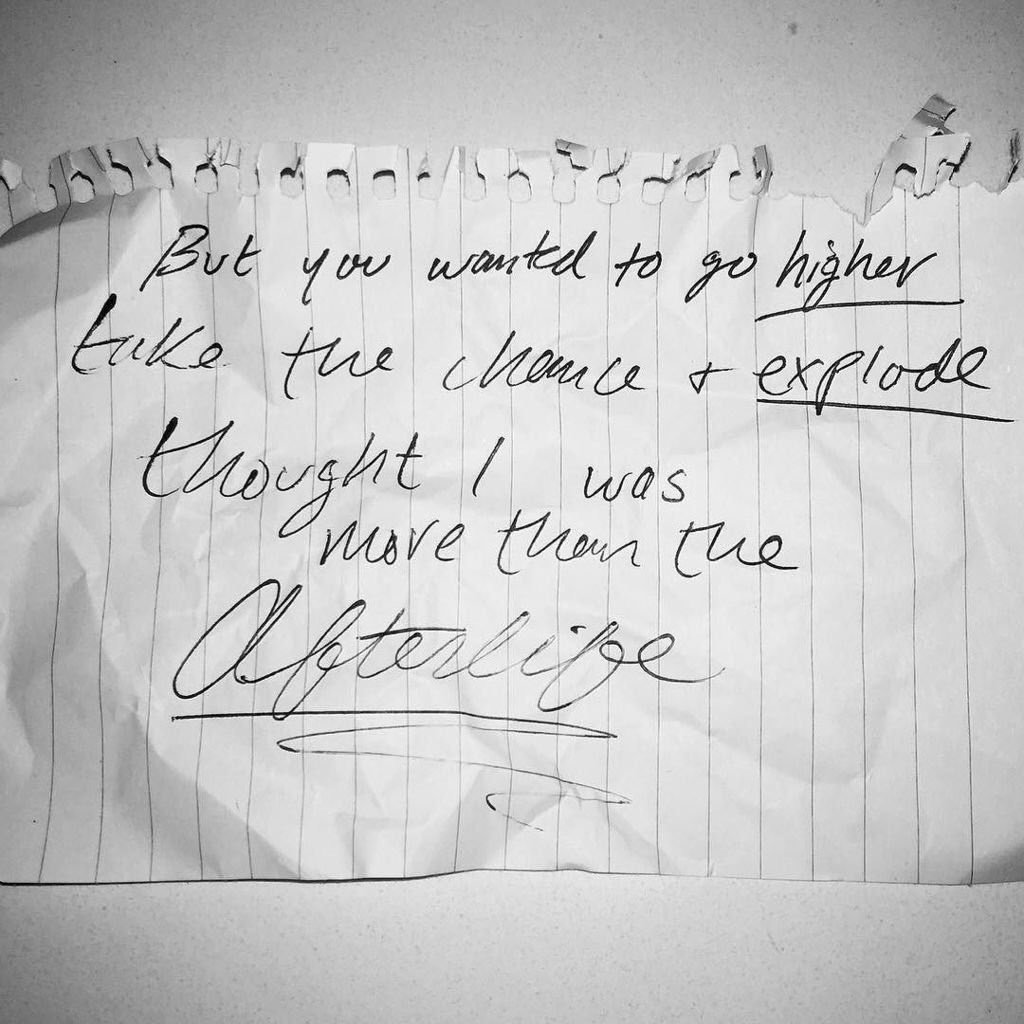 But you wanted to go higher
take the chance + explode
thought I was
more than the
Afterlife